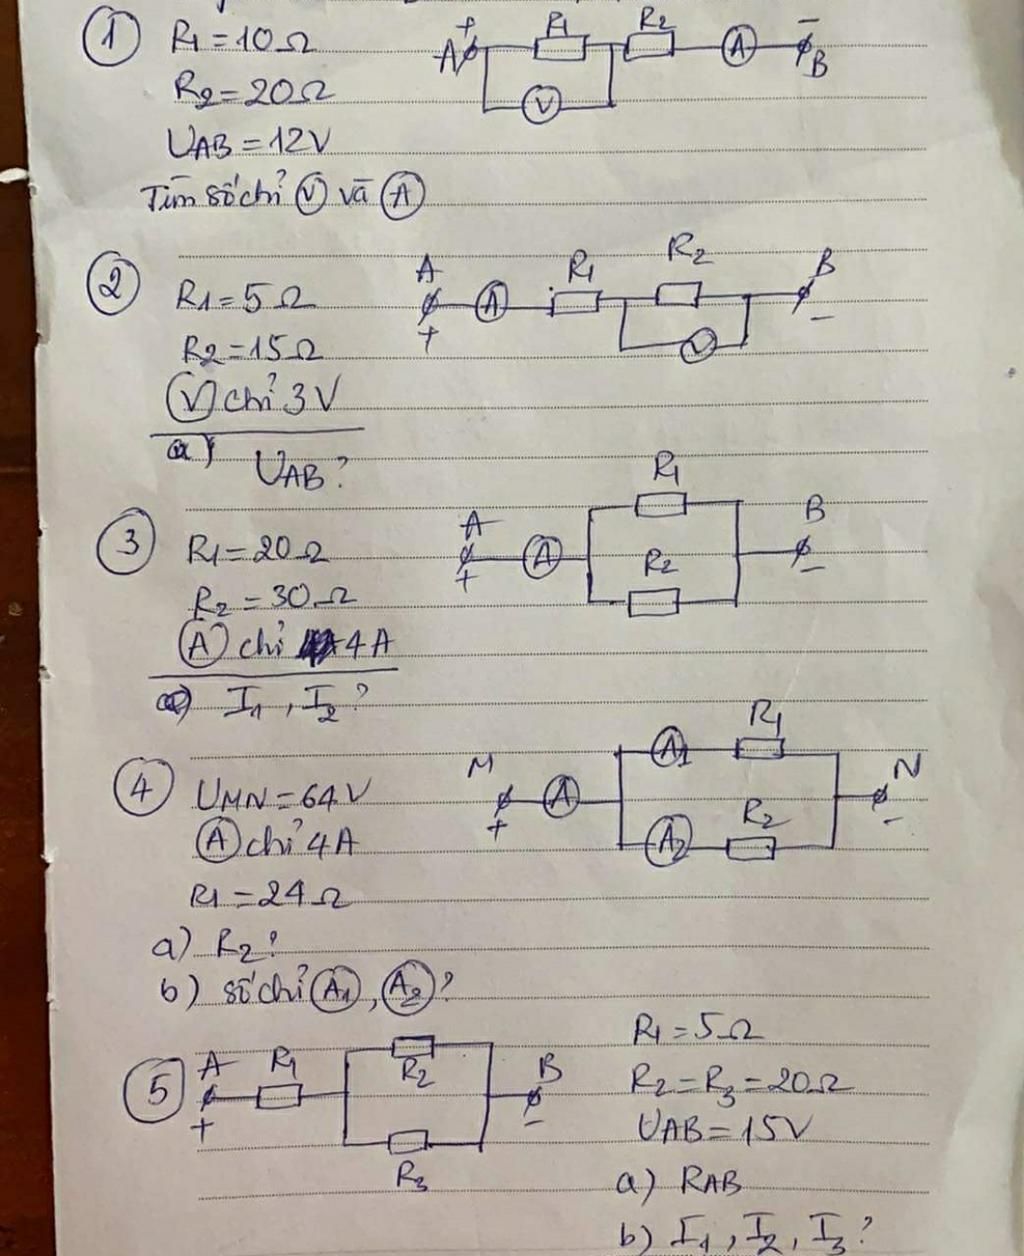 1 R1=10Ω
R2=20Ω
UAB=12V
Tìm số chỉ V và A
+ A R1 R2 A − B
V
2 R1=5Ω
R2=15Ω
V chỉ 3V
a) UAB?
A + A R1 R2 B −
V
3 R1=20Ω
R2=30Ω
A chỉ 4A
a) I1, I2?
A + A R1 B −
R2
4 UMN=64V
A chỉ 4A
R1=24Ω
a) R2?
b) số chỉ A1, A2?
M + A A1 R1 N −
A2 R2
5 A + R1 R2 B −
R3
R1=5Ω
R2=R3=20Ω
UAB=15V
a) RAB
b) I1, I2, I3?